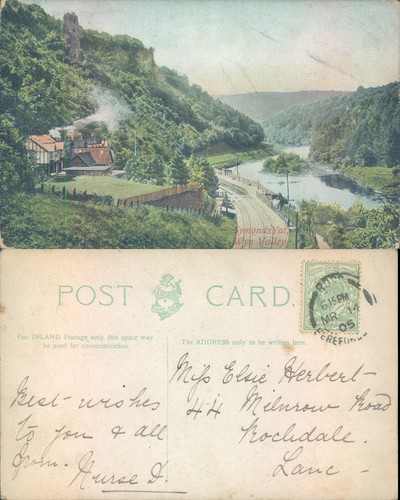 Symonds Yat,
Wye Valley
POST CARD.
For INLAND Postage only this space may
be used for communication.
The ADDRESS only to be written here.
ROSS
6.15PM
MR 14
05
HEREFORD
Best-wishes
to you & all
from.
Nurse D.
Miss Elsie Herbert-
44 Milnrow Road
Rochdale.
Lanc-